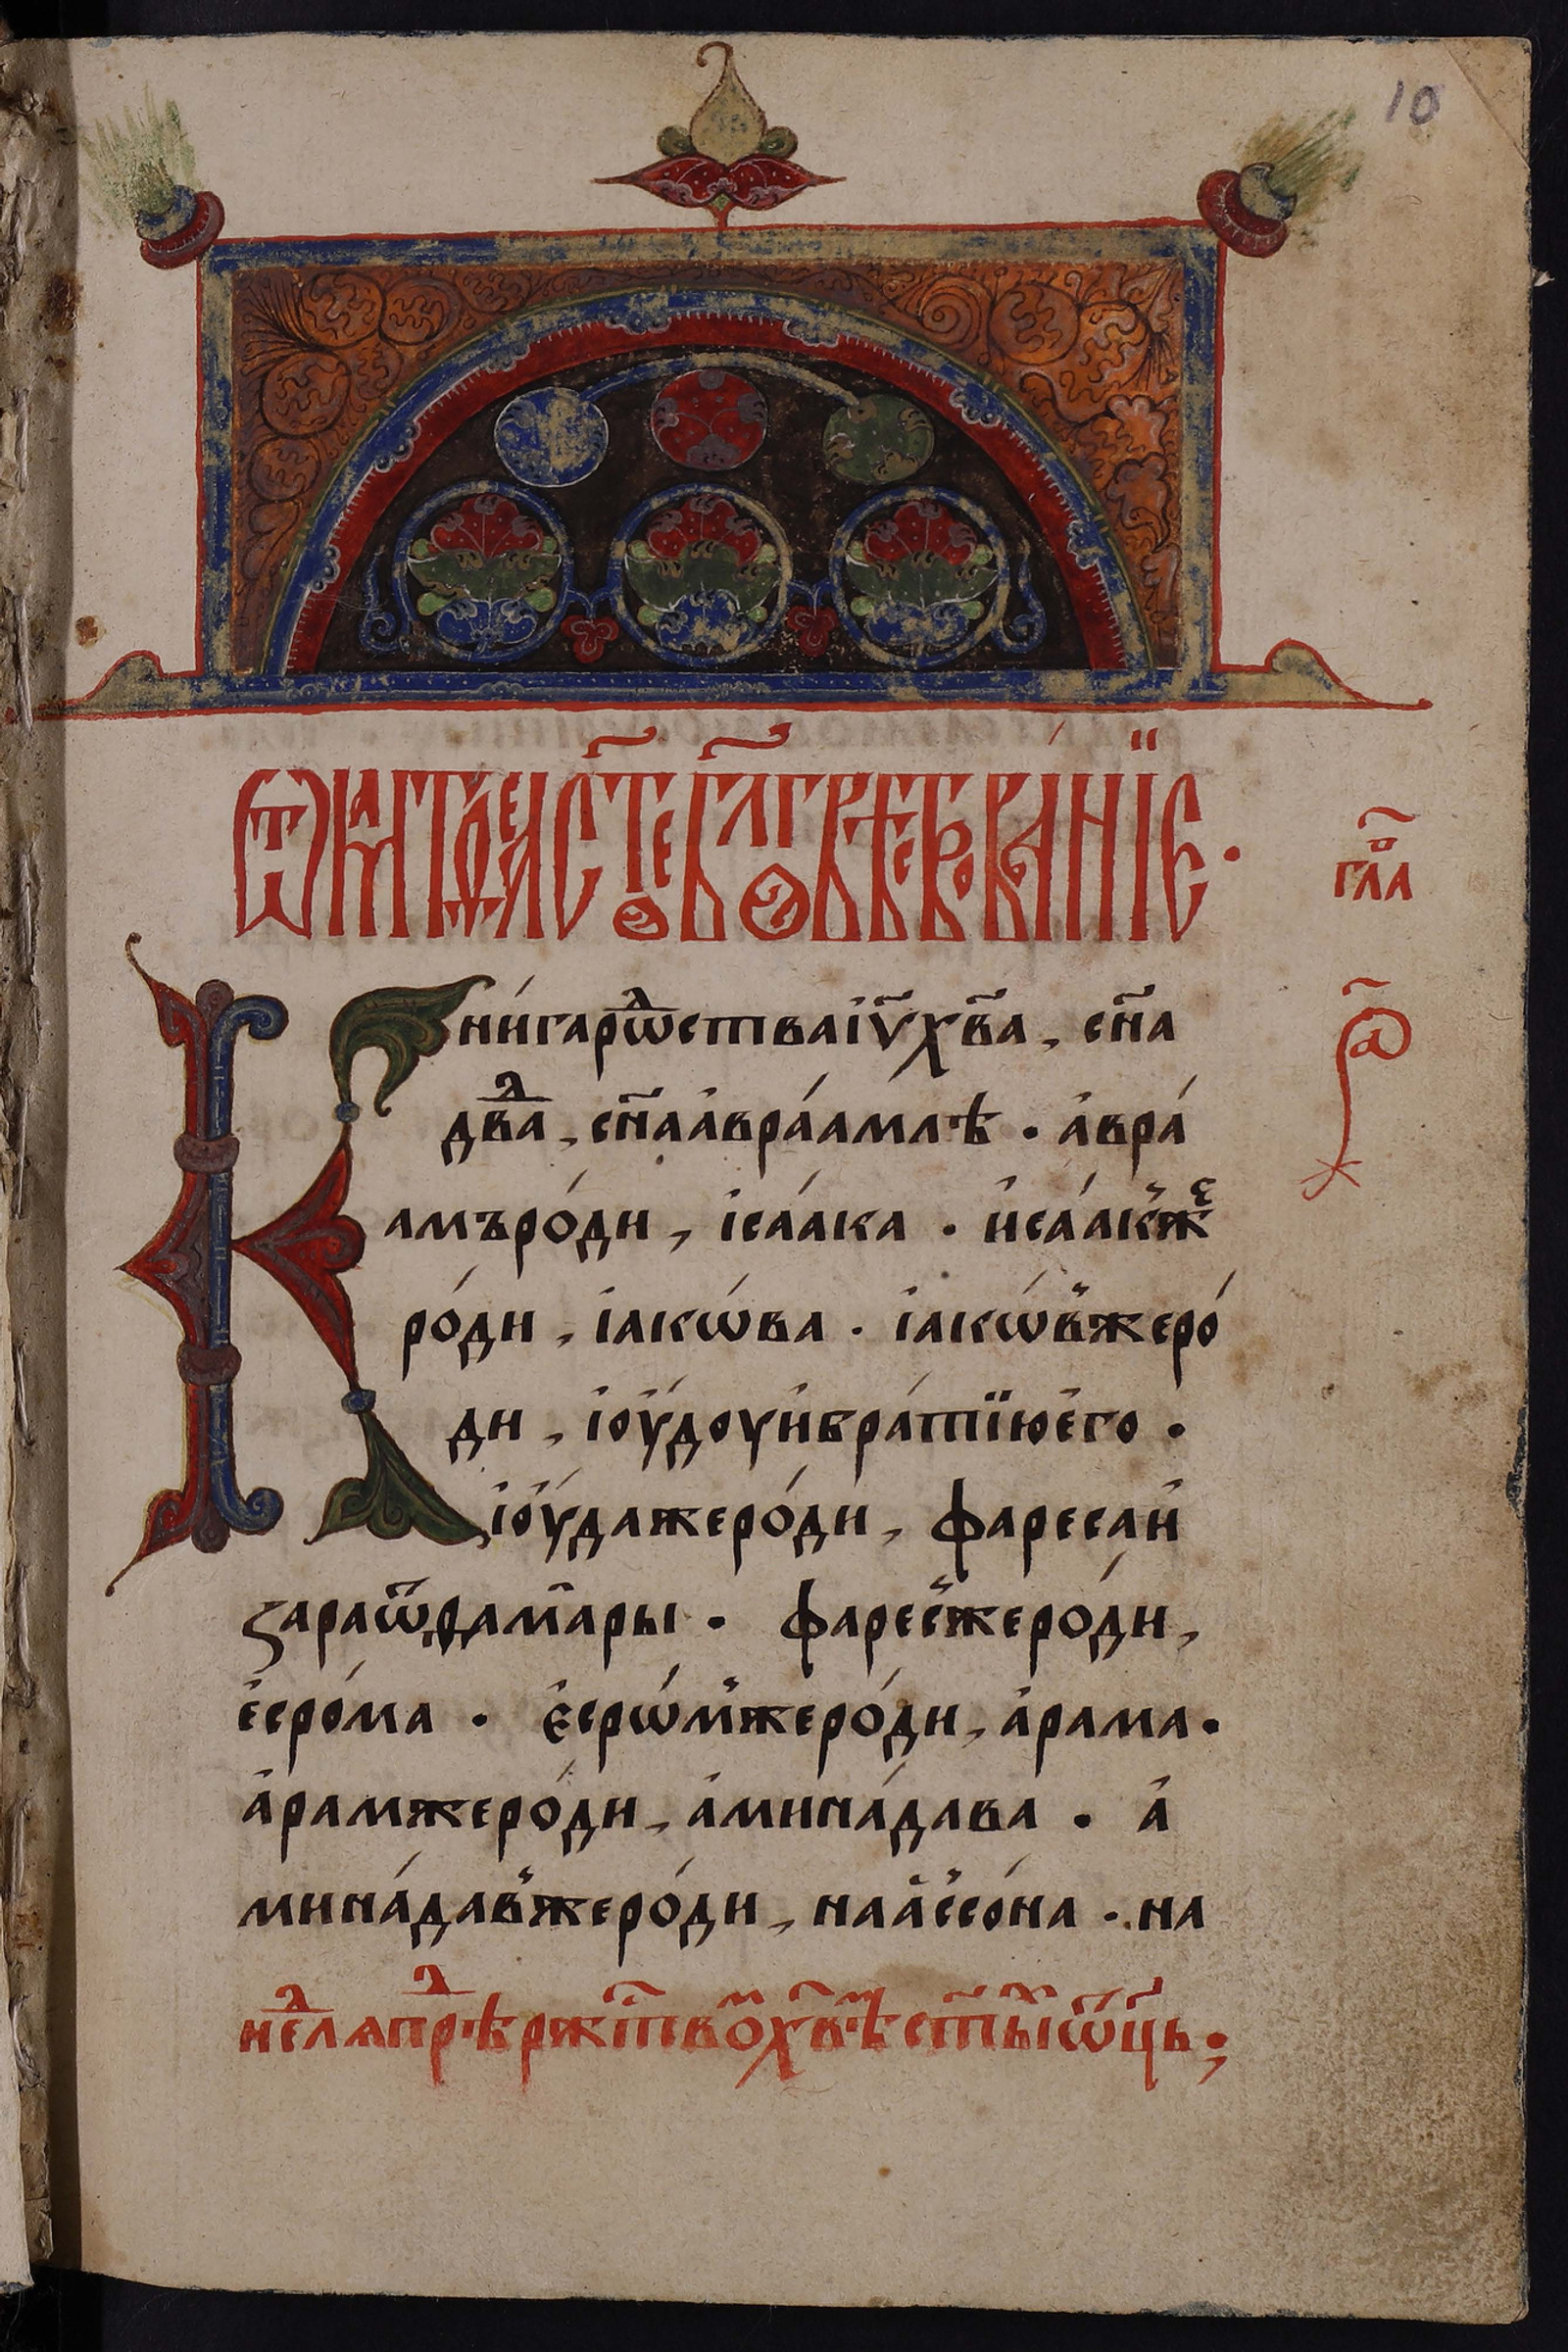 10
ѿ матде́ꙗ ст҃ое бл҃говѣствова́нїе ·
гла҃
а҃
Кни́га рѡⷣства і҆у҃ хв҃а, сн҃а
дв҃ⷣа, сн҃а а҆враа́млѣ · а҆вра́
амъ ро́ди, і҆саа́ка · и҆саа́к̾жеⷭ
ро́ди, і҆акѡ́ва · і҆акѡ́в̾же ро́
ди, і҆оу́доу и҆ бра́тїю е҆го ·
і҆оу́да же ро́ди, фареса и҆
зара ѿ ѳамары · фарес̾же ро́ди,
е҆сро́ма · е҆срѡ́м̾же ро́ди, а҆рама ·
а҆рам же ро́ди, а҆мина́дава · а҆
мина́дав̾же ро́ди, наассо́на · на
неⷣлѧ преⷣ ржⷭ҇твоⷨ хв҃ѣⷨ ст҃ыⷯ ѡ҃ць ;